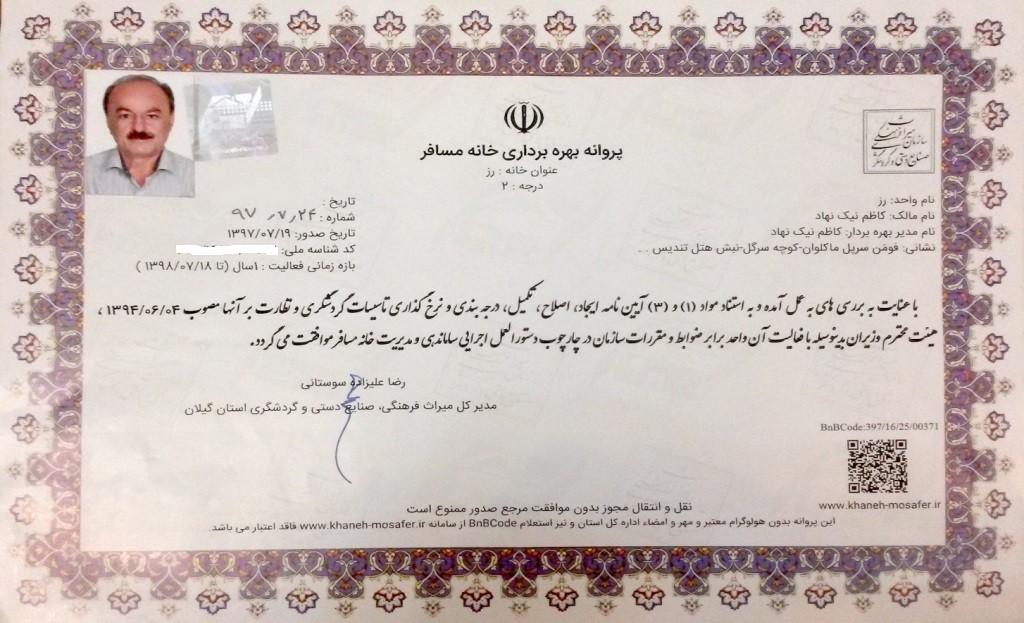 سازمان میراث فرهنگی
صنایع دستی و گردشگری
پروانه بهره برداری خانه مسافر
عنوان خانه : رز
درجه : ۲
نام واحد: رز
نام مالک: کاظم نیک نهاد
نام مدیر بهره بردار: کاظم نیک نهاد
نشانی: فومن سرپل ماکلوان-کوچه سرگل-نبش هتل تندیس
تاریخ :
شماره : ۹۷/۷/۲۴
تاریخ صدور: ۱۳۹۷/۰۷/۱۹
کد شناسه ملی:
بازه زمانی فعالیت : ۱سال (تا ۱۳۹۸/۰۷/۱۸ )
با عنایت به بررسی های به عمل آمده و به استناد مواد (۱) و (۳) آیین نامه ایجاد، اصلاح، تکمیل، درجه بندی و نرخ گذاری تاسیسات گردشگری و نظارت بر آنها مصوب ۱۳۹۴/۰۶/۰۴ ،
هیئت محترم وزیران بدینوسیله با فعالیت آن واحد برابر ضوابط و مقررات سازمان در چارچوب دستورالعمل اجرایی ساماندهی و مدیریت خانه مسافر موافقت می گردد.
رضا علیزاده سوستانی
مدیر کل میراث فرهنگی، صنایع دستی و گردشگری استان گیلان
BnBCode:397/16/25/00371
www.khaneh-mosafer.ir
نقل و انتقال مجوز بدون موافقت مرجع صدور ممنوع است
این پروانه بدون هولوگرام معتبر و مهر و امضاء اداره کل استان و نیز استعلام BnBCode از سامانه www.khaneh-mosafer.ir فاقد اعتبار می باشد.